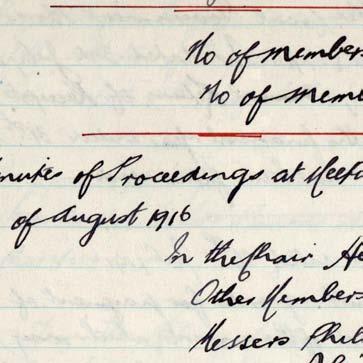 No of member
No of mem
nutes of Proceedings at Meet
of August 1916
In the Chair He
Other Members
Messers Phil